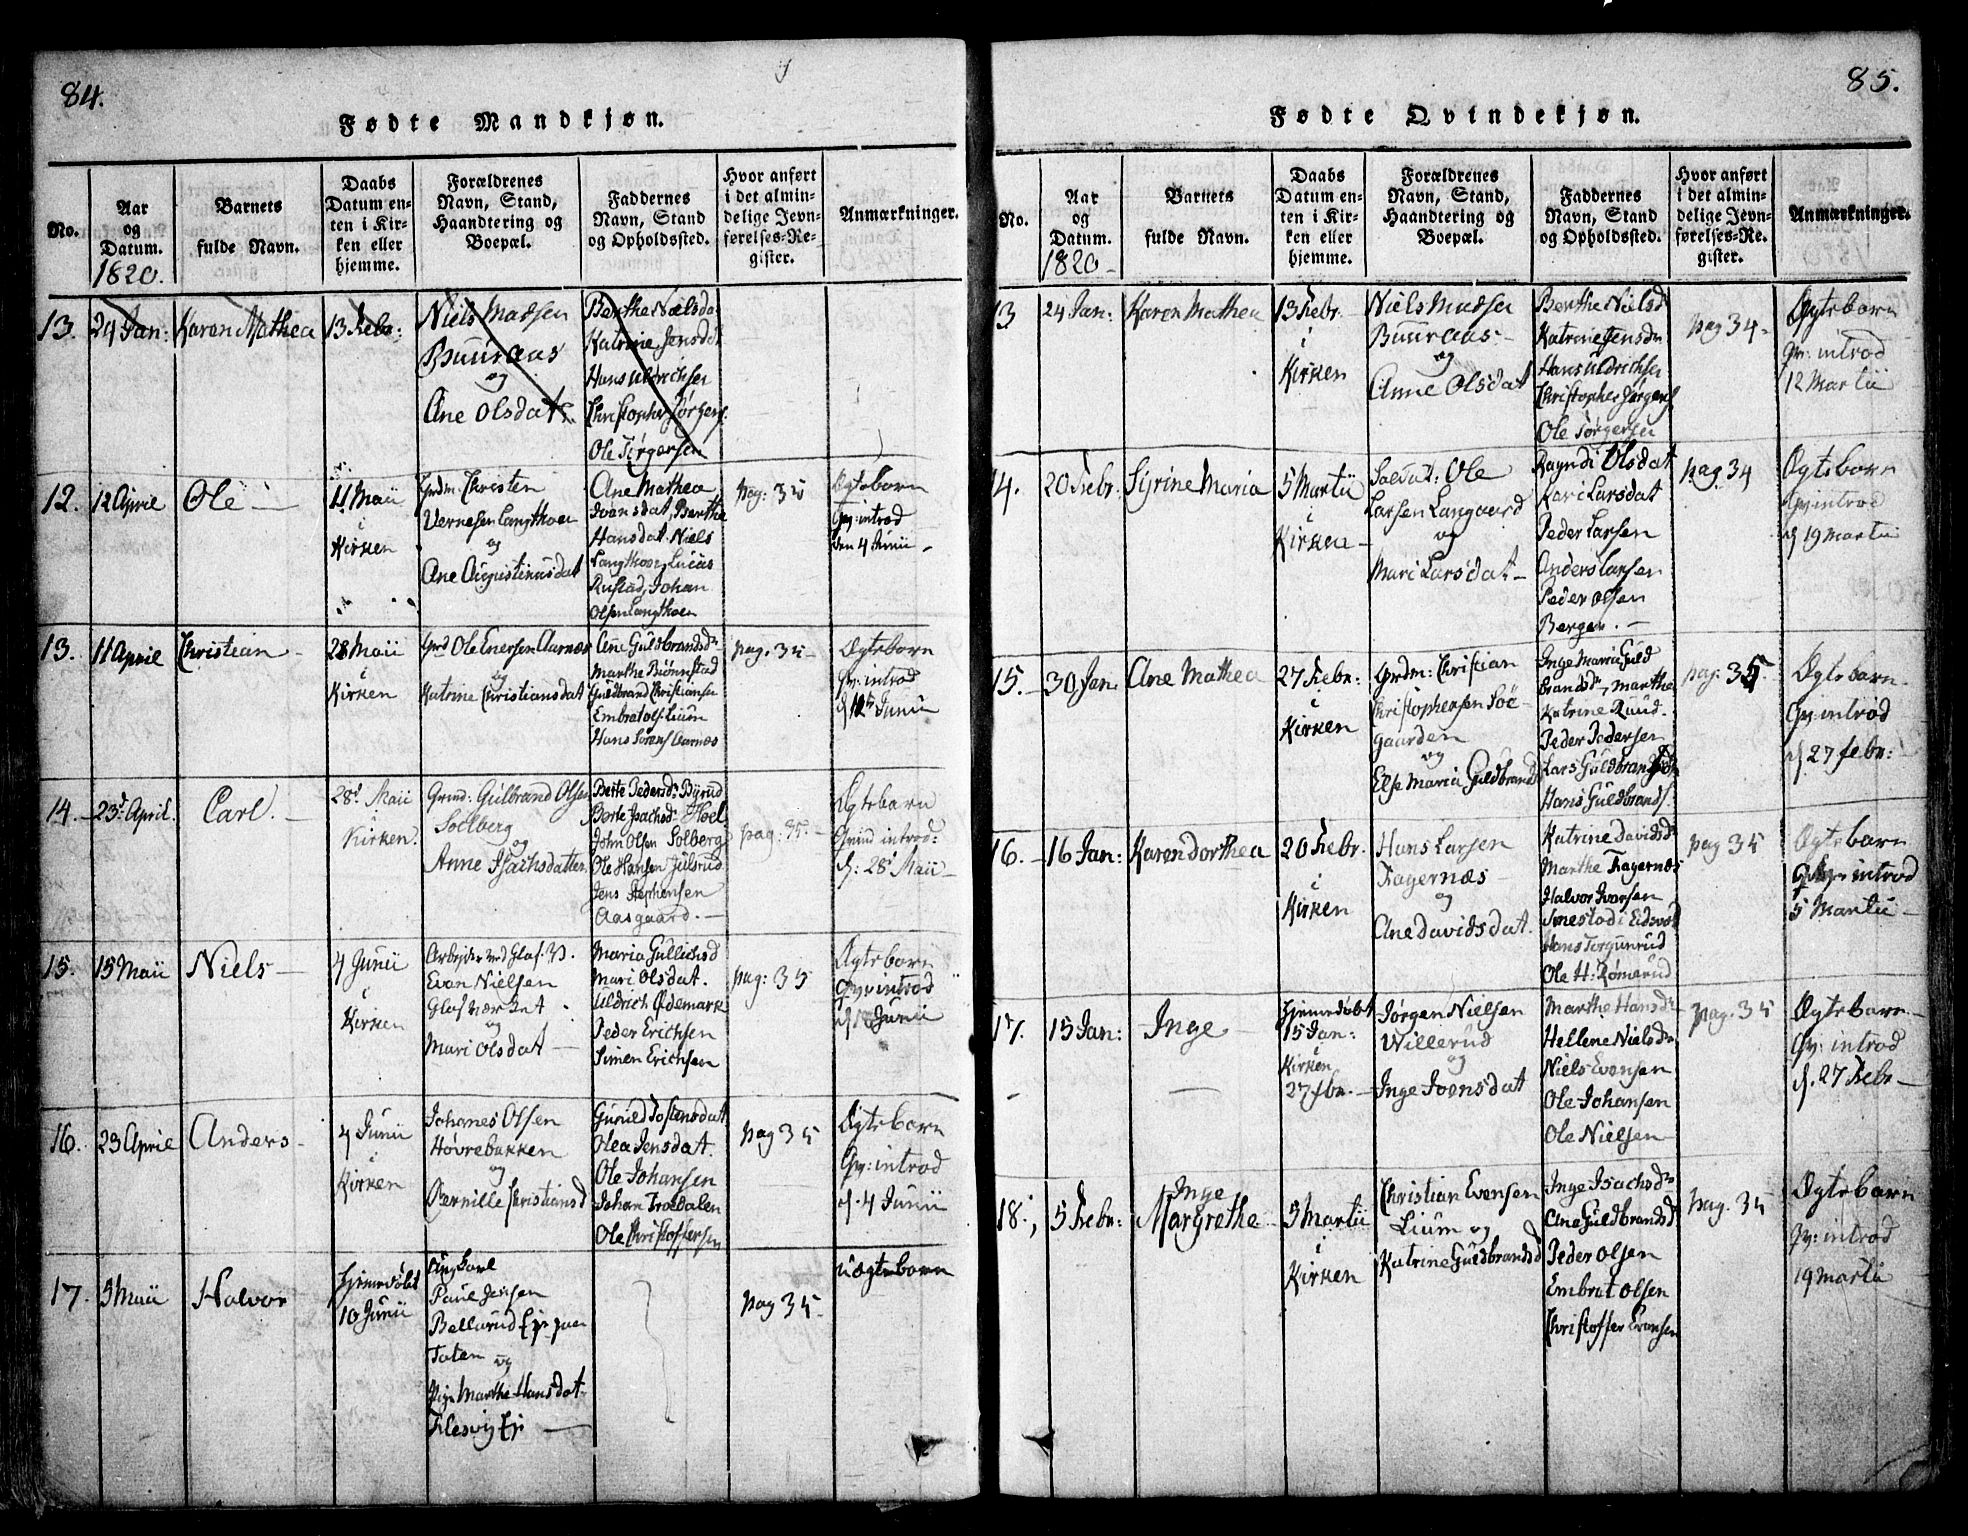 84.
Fødte Mandkjøn.
No.
Aar
og
Datum.
1820.
Barnets
fulde Navn.
Daabs
Datum en-
ten i Kir-
ken eller
hjemme.
Forældrenes
Navn, Stand,
Haandtering og
Boepæl.
Faddernes
Navn, Stand
og Opholdssted.
Hvor anført
i det almin-
delige Jevn-
førelses-Re-
gister.
Anmærkninger.
13.
24 Jan:
Karen Mathea
13 Febr:
Niels Madsen
Buuraas
og
Ane Olsdat
Berthe Nielsda
Katrine Jensdt
Hans Uldrichsen
Christopher Jørgens.
Ole Jørgersen
12.
12 April
Ole
11 Maii
i
Kirken
Grdm. Christen
Vernesen Langthoen
og
Ane Augustinusdat
Ane Mathea
Ivensdat, Berthe
Hansdat. Niels
Langthoen, Lucas
Rustad, Johan
Olsen Langthoen
pag: 35
Ægtebarn
Qv: introd
den 4 Junii
13.
11 April
Christian
28 Maii
i
Kirken
Grd Ole Enersen Aarnæs
og
Katrine Christiansdat
Ane Guldbrandsd
Marthe Biønnstad
Guldbrand Christiansen
Embrat Olf Lium
Hans Sørens Aarnæs
pag. 35
Ægtebarn
Qv: introd
d Junii
14.
23d April.
Carl.
28d Maii
i
Kirken.
Grmd: Gulbrand Olsen
Soelberg
og
Anne Isachsdatter
Berte Pedersd. Byrud
Berte Isachsd. Hoel
John Olsen Solberg
Ole Hansen Julsrud
Jens Stephensen
Aasgaard.
pag: 35.
Ægtebarn
Qvind introd:
d: 28d Maii
15.
15 Maii
Niels
4 Junii
i
Kirken
Arbejder ved Glas. V.
Even Nielsen
Glasværket
og
Mari Olsdat
Maria Gullichsd
Mari Olsdat.
Uldrich Ødemark
Peder Erichsen
Simen Erichsen
pag: 35
Ægtebarn
Qv: introd
d Junii
16.
23 April
Anders
4 Junii
i
Kirken
Johanes Olsen
Høvrebakken
og
Pernille Christiansd
Guried Tostensdat
Olea Jensdat.
Ole Johansen
Johan Troldalen
Ole Christoffersen
pag 35
Ægtebarn
Qv: introd
d. 4 Junii
17.
3 Maii
Halvor
Hjemdøbt
10 Junii
Ungkarl
Paul Jensen
Bellerud Ejr paa
Toten
og
Pige Marthe Hansdat.
Flesvig Ejr
pag 35
Uægtebarn
85.
Fødte Qvindekjøn.
No.
Aar
og
Datum.
1820
Barnets
fulde Navn.
Daabs
Datum en-
ten i Kir-
ken eller
hjemme.
Forældrenes
Navn, Stand,
Haandtering og
Boepæl.
Faddernes
Navn, Stand
og Opholdssted.
Hvor anført
i det almin-
delige Jevn-
førelses-Re-
gister.
Anmærkninger.
13
24 Jan:
Karen Mathea
13 Febr.
i
Kirken
Niels Madsen
Buuraas
og
Anne Olsdat
Berthe Nielsd
Katrine Jensdr
Hans Uldrichsen
Christopher Jørgens
Ole Jørgersen
pag 34
Ægtebarn
Qv: introd
12 Martii
14.
20 Febr:
Syrine Maria
5 Martii
i
Kirken
Soldat: Ole
Larsen Langaard
og
Mari Larsdat
Ragndi Olsdat
Kari Larsdat
Peder Larsen
Anders Larsen
Peder Olsen
Berger.
pag. 34
Ægtebarn
Qv introd
d 19 Martii
15.
30 Jan.
Ane Mathea
27 Febr:
i
Kirken
Grdm: Christian
Christophersen Sõe-
gaarden
og
Else Maria Guldbrands
Inge Maria Guld
brandsdr, Marthe
Katrine Ruud.
Peder Pedersen
Lars Guldbrandsen
Hans Guldbrands.
pag. 35.
Ægtebarn
Qv: introd
d. 27 febr:
16.
16 Jan:
Karen dorthea
20 Febr.
i
Kirken
Hans Larsen
Fagernæs
og
Ane Davidsdat.
Katrine Davidsd
Marthe Fagernæs
Halvor Iversen
Smestad i Eidsvold
Hans Torgunrud
Ole H. Rømerud
pag 35
Ægtebarn
introd
5 Martii
17.
15 Jan:
Inge
Hjemdøbt
15 Jan:
i
Kirken
27 fbr.
Jørgen Nielsen
Willerud
og
Inge Ivensdat
Marthe Hansdr
Hellene Nielsdr
Niels Evensen
Ole Johansen
Ole Nielsen
pag. 35
Ægtebarn
Qv: introd
d. 27 Febr
18.
5 Febr:
Inge
Margrethe
5 Martii
i
Kirken
Christian Evensen
Lium og
Katrine Guldbrandsd
Inge Isachsdr
Ane Guldbrandsd
Peder Olsen
Embrat Olsen
Christoffer Evensen
pag. 35
Ægtebarn
Qv: introd
19 Martii